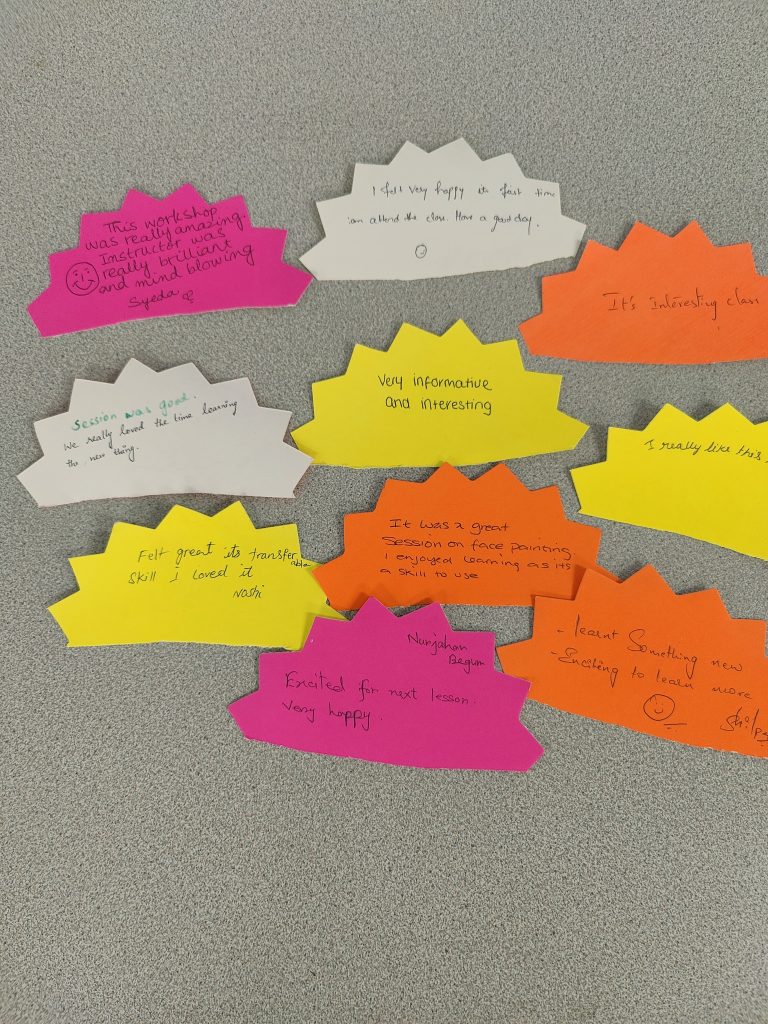 This workshop
was really amazing.
Instructor was
really brilliant
and mind blowing
Syeda
I felt very happy its first time
iam attend the class. Have a good day.
It's Interesting class
Session was good.
We really loved the time learning
the new thing.
Very informative
and interesting
I really like this
Felt great its transfer
able
skill I loved it
Nashi
It was a great
session on face painting
i enjoyed learning as its
a skill to use
- learnt Something new
- Exciting to learn more
Shilpa
Nurjahan
Begum
Excited for next lesson.
Very happy.